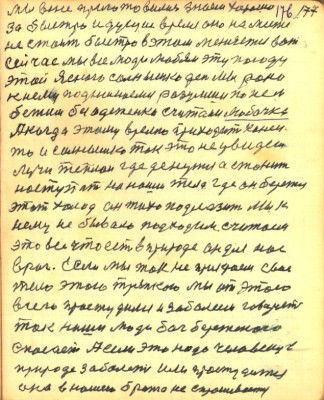 мы они приготовились знаем хорошо 176 177
за быстро идущие время оно на месте
не стоит быстро в этом меняется вот
сейчас мы все люди любим эту погоду
этой ясного солнышка для мы рано
к нему поднимаемся разумиши по нем
бежим без одежёнка считаем Мобочка
А когда этому время приходит конец
то и солнышко так это не увидем
лучи теплом где денутся а станут
наступать на наши тела где он берется
этот холод он тихо подлазит Мы к
нему не бывало подходим считаем
это все что есть в природе он для нас
враг. Если мы так не придаем свое
тело этого тряпкою мы от этого
всего простудимся и заболеем говорят
так наши люди Бог береженого
спасает А если это надо человеку в
природе заболеть или простудится
она в нашего брата не спрашивает